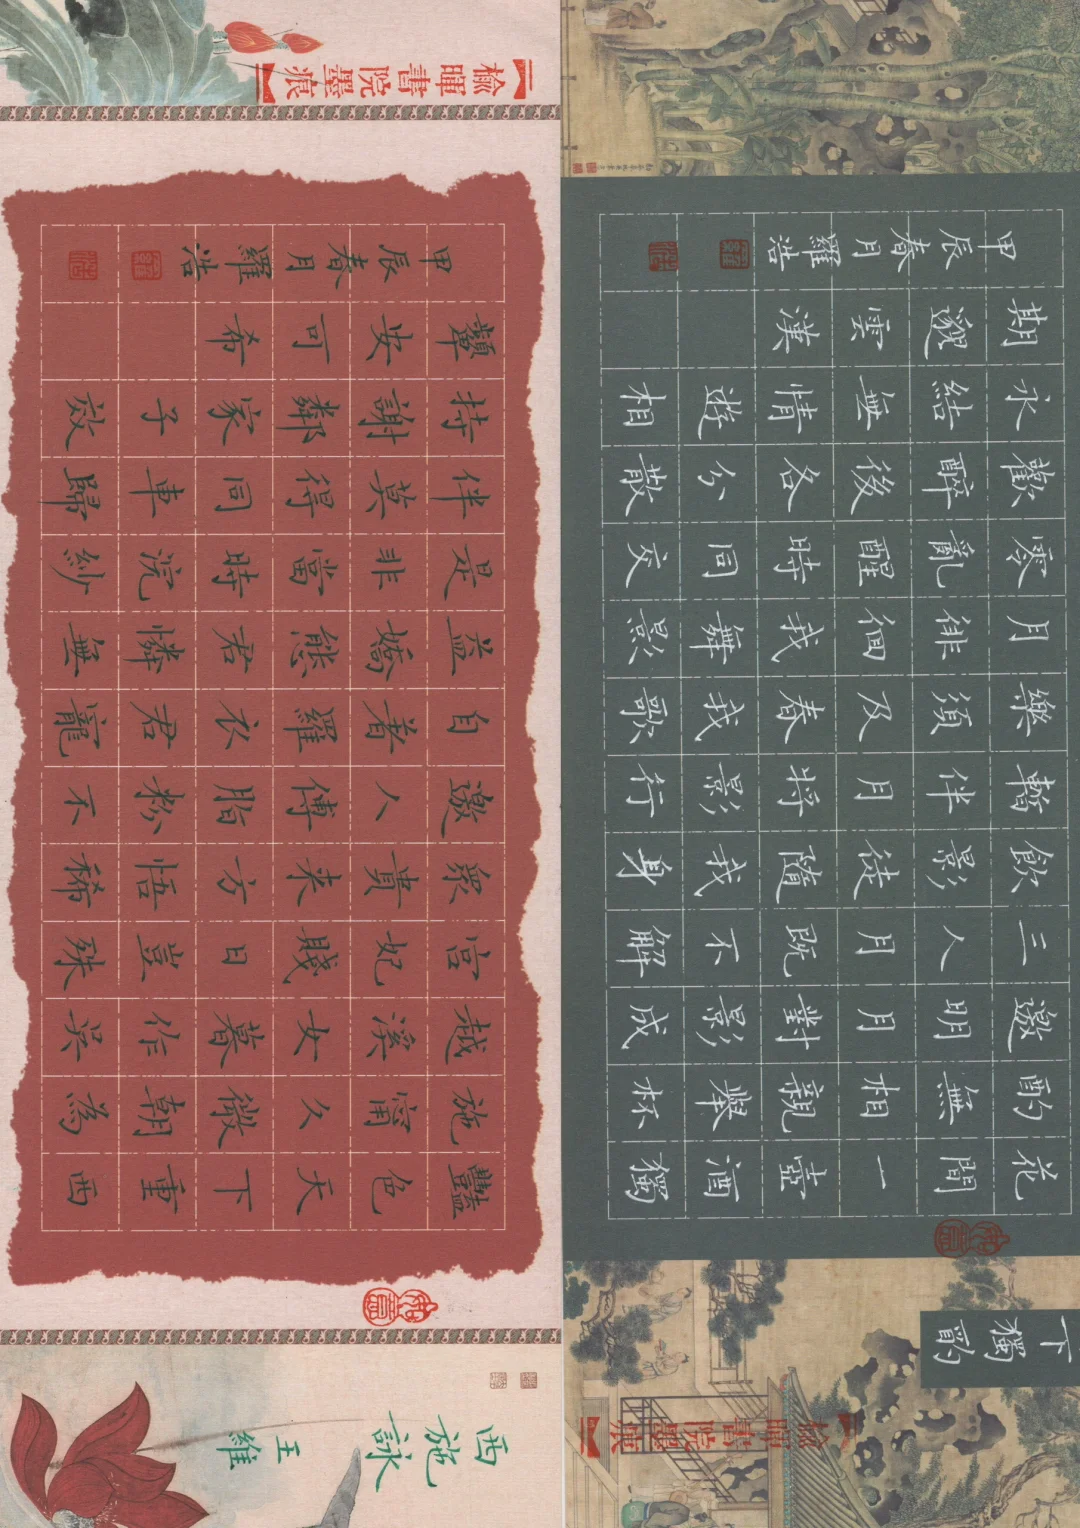 西施詠
王維
豔色天下重西
施甯久微朝為
越溪女暮作吳
宮妃賤日豈殊
衆貴來方悟稀
邀人傅脂粉不
自著羅衣君寵
益嬌態君憐無
是非當時浣紗
伴莫得同車歸
持謝鄰家子效
顰安可希
甲辰春月羅浩
榆暉書院墨痕
下
獨酌
榆暉書院墨痕
花間一壺酒獨
酌無相親舉杯
邀明月對影成
三人月既不解
飲影徒隨我身
暫伴月將影行
樂須及春我歌
月徘徊我舞影
零亂醒時同交
歡醉後各分散
永結無情遊相
期邈雲漢
甲辰春月羅浩